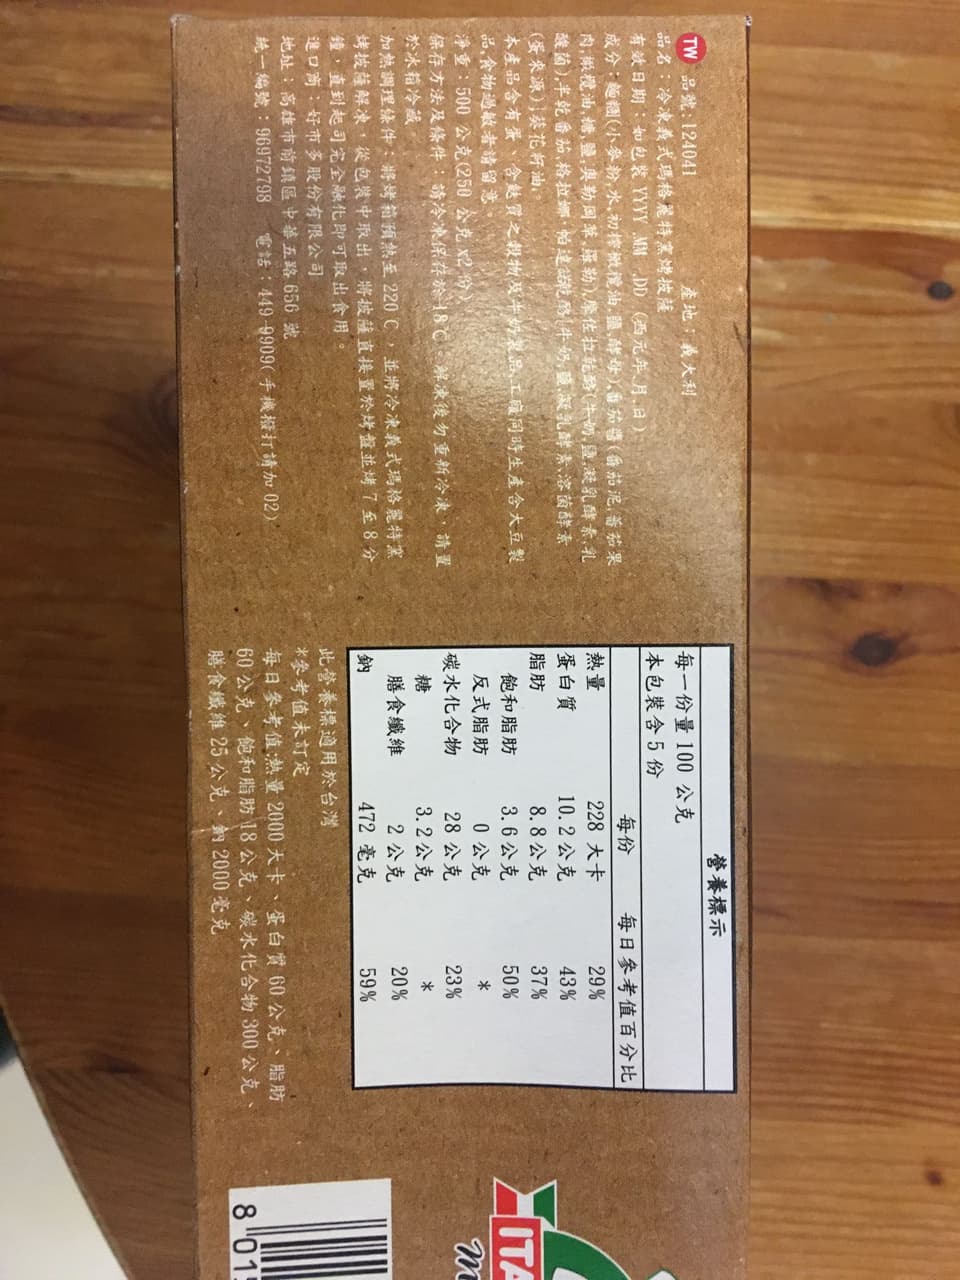 TW 品號:124041 產地：義大利
品名：冷凍義式瑪格麗特窯烤披薩
有效日期：如包裝 YYYY. MM . DD (西元年.月.日)
成分：麵糰(小麥粉,水,初榨橄欖油,鹽,酵母),番茄醬(番茄泥,番茄果
肉,橄欖油,糖,鹽,奧勒岡葉,羅勒),摩佐拉乾酪(牛奶,鹽,凝乳酵素,乳
酸菌),半乾番茄,格拉娜·帕達諾乾酪(牛奶,鹽,凝乳酵素,溶菌酵素
(蛋來源)),葵花籽油.
本產品含有蛋、含麩質之穀物及牛奶製品,工廠同時生產含大豆製
品,食物過敏者請留意.
淨重：500 公克(250 公克 x2份)
保存方法及條件：請冷凍保存於-18℃，解凍後勿重新冷凍，請置
於冰箱冷藏.
加熱調理條件：將烤箱預熱至 220℃，並將冷凍義式瑪格麗特窯
烤披薩解凍，從包裝中取出，將披薩直接置於烤盤並烤 7 至 8 分
鐘，直到起司完全融化即可取出食用。
進口商：好市多股份有限公司
地址：高雄市前鎮區中華五路 656 號
統一編號：96972798 電話：449-9909(手機撥打請加 02)
營養標示
每一份量 100 公克
本包裝含 5 份
每份 每日參考值百分比
熱量 228 大卡 29%
蛋白質 10.2 公克 43%
脂肪 8.8 公克 37%
飽和脂肪 3.6 公克 50%
反式脂肪 0 公克 *
碳水化合物 28 公克 23%
糖 3.2 公克 *
膳食纖維 2 公克 20%
鈉 472 毫克 59%
此營養標適用於台灣
*參考值未訂定
每日參考值:熱量 2000 大卡、蛋白質 60 公克、脂肪
60 公克、飽和脂肪 18 公克、碳水化合物 300 公克、
膳食纖維 25 公克、鈉 2000 毫克
ITA
8 015